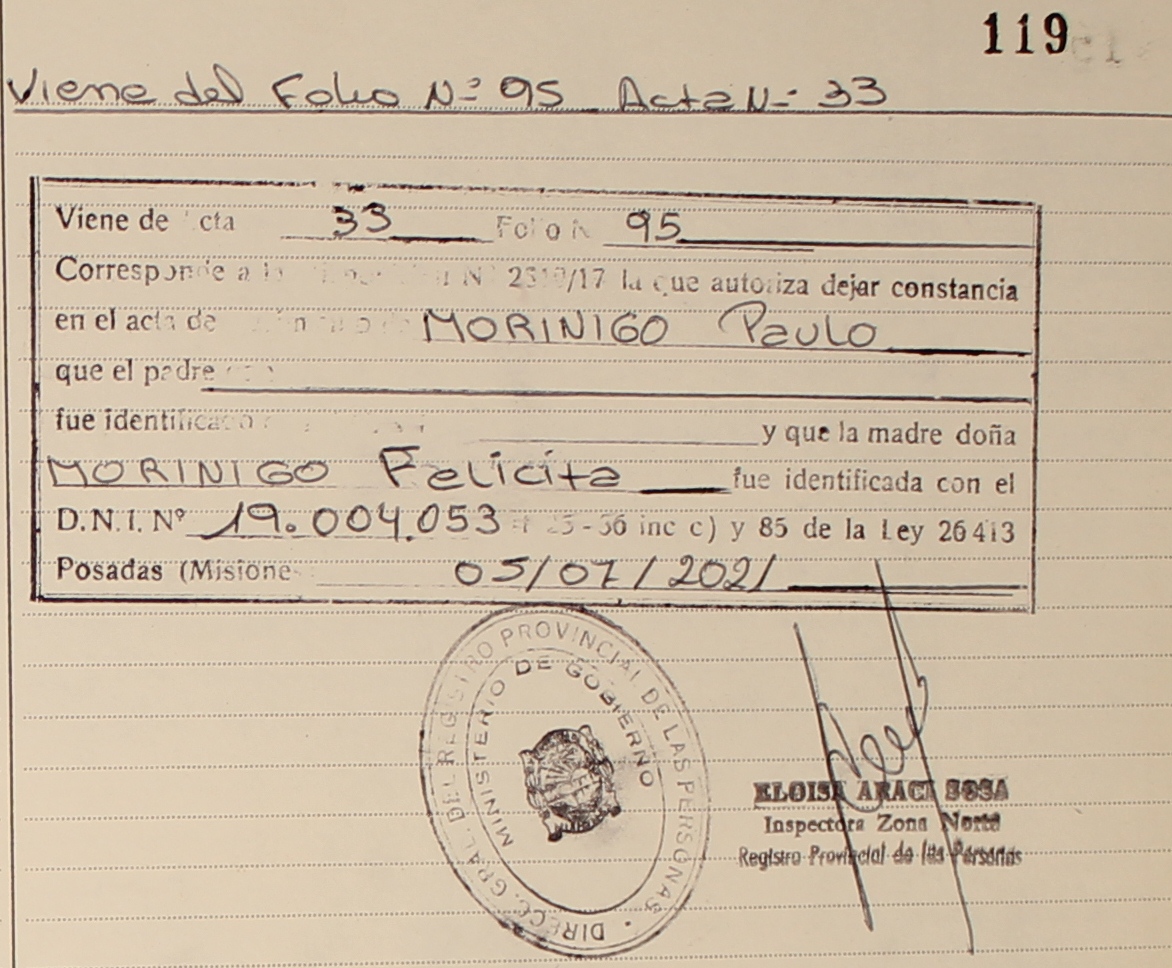 119
Viene del Folio Nº 95 Acta Nº 33
Viene de cta 33 Folio N 95
Corresponde a la N 2319/17 la que autoriza dejar constancia
en el acta de MORINIGO Paulo
que el padre
fue identificado y que la madre doña
MORINIGO Felicita fue identificada con el
D.N.I. Nº 19.004.053 - 36 inc c) y 85 de la Ley 26413
Posadas (Misione 05/07/2021
DIRECC. GRAL. DEL REGISTRO PROVINCIAL DE LAS PERSONAS
MINISTERIO DE GOBIERNO
ELOISA ARACI SOSA
Inspectora Zona Norte
Registro Provincial de las Personas